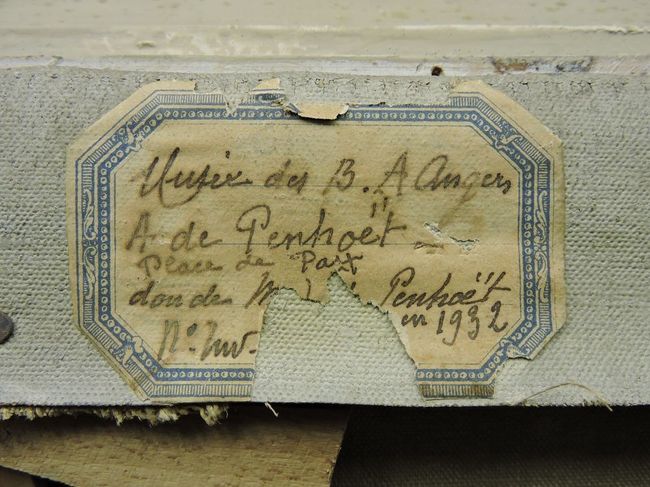 Musée des B. A Angers
A. de Penhoët
Place de
don de M Penhoët
en 1932
N° Inv.